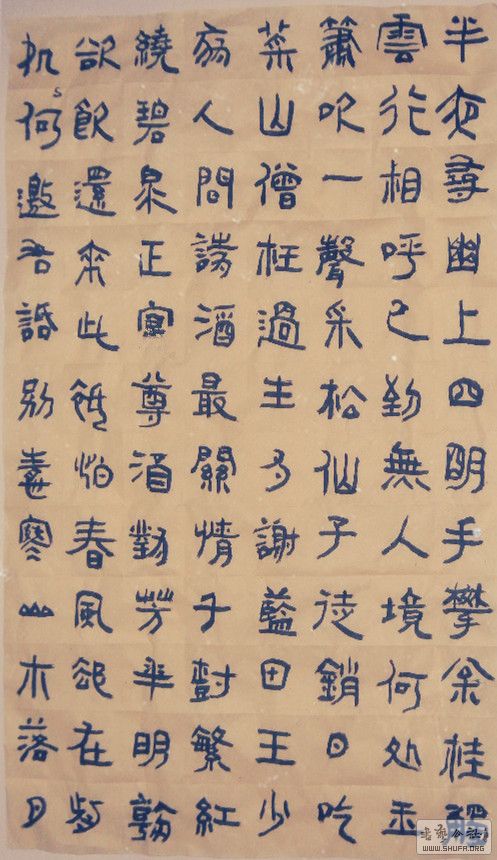 半夜尋幽上四明手攀余桂
雲行相呼已到無人境何处玉
簫吹一聲采松仙子徒銷日吃
菜山僧枉過生多謝藍田王少
府人問詩酒最關情千樹繁紅
繞碧泉正宜尊酒對芳年明朝
欲飲還來此秪怕春風卻在前
何邀君話別寒山木落月
书法公社
WWW.SHUFA.ORG